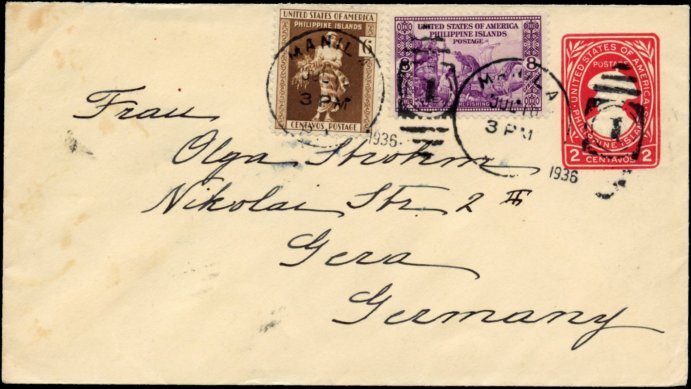 UNITED STATES OF AMERICA
PHILIPPINE ISLANDS
6
CENTAVOS POSTAGE
UNITED STATES OF AMERICA
PHILIPPINE ISLANDS
POSTAGE
8 8
PEARL FISHING
UNITED STATES OF AMERICA
POSTAGE
PHILIPPINE ISLANDS
2 CENTAVOS 2
MANILA
JUL
3 PM
1936
MANILA
JUL
3 PM
1936
1
1
Frau
Olga Strohm
Nikolai Str. 2 II
Gera
Germany